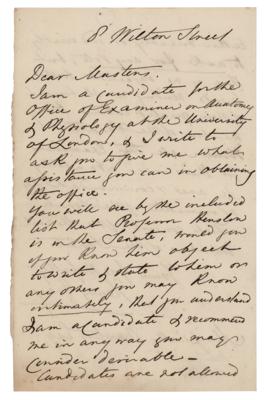 8 Wilton Street
Dear Masters.
I am a candidate for the
Office of Examiner on Anatomy
& Physiology at the University
of London, & I write to
ask you to give me what
assistance you can in obtaining
the office.
You will see by the included
list that Professor Henslow
is in the Senate, would you
if you know him object
to write & state to him or
any others you may know
intimately, that you understand
I am a candidate & recommend
me in any way you may
consider desirable –
Candidates are not allowed